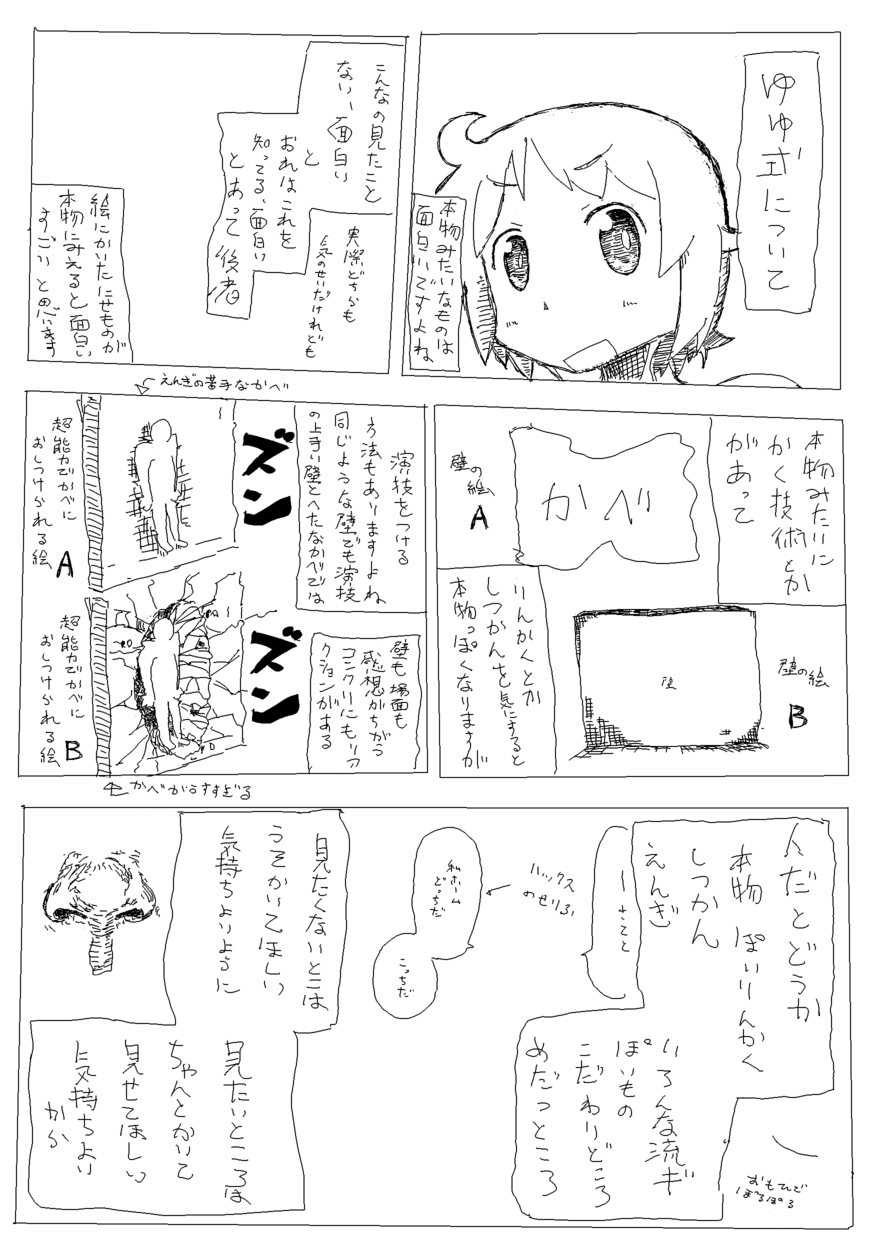 ゆゆ式について
本物みたいなものは
面白いですよね
こんなの見たこと
ない、面白い
と
おれはこれを
知ってる、面白い
とあって後者
実際どちらも
気のせいだけれども
絵にかいたにせものが
本物にみえると面白い
すごいと思います
本物みたいに
かく技術とか
があって
壁の絵
A
かべ
壁の絵
B
壁
りんかくとか
しつかんを気にすると
本物っぽくなりますが
演技をつける
方法もありますよね
同じような壁でも演技
の上手い壁とへたなかべでは
壁も場面も
感想がちがう
コンクリにもリア
クションがある
えんぎの苦手なかべ
ズン
超能力でかべに
おしつけられる絵
A
ズン
超能力でかべに
おしつけられる絵
B
かべがうすすぎる
人だとどうか
本物ぽいりんかく
しつかん
えんぎ
いろんな流ギ
ぽいもの
こだわりどころ
めだつところ
おもてんで
ーさてと
ハックス
のせりふ
私ホーム
どっちだ
こっちだ
見たくないとこは
うそかいてほしい
気持ちよいように
見たいところは
ちゃんとかいて
見せてほしい
気持ちよい
かか